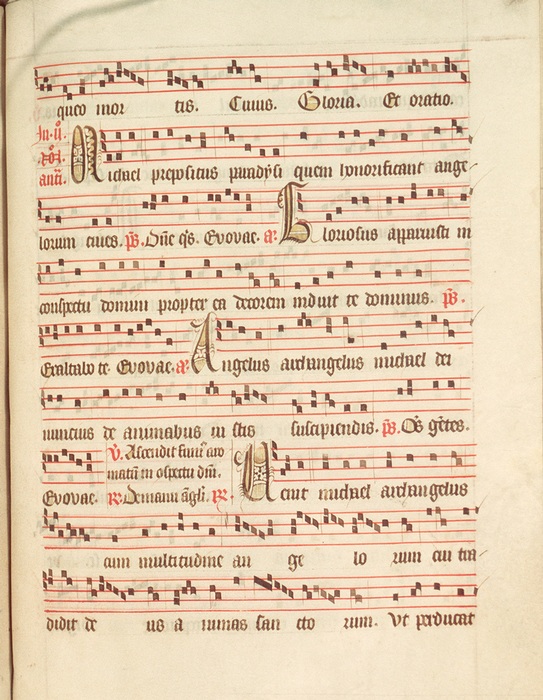 queo mor tis. Cuius. Gloria. Et oratio.
In .ii.
not.
anti. Michael prepositus paradysi quem honorificant ange
lorum ciues. ps. Dne qs. Evovae. a. Gloriosus apparuisti in
conspectu domini propter ea decorem induit te dominus. ps.
Exaltabo te. Evovae. a. Angelus archangelus michael dei
nuncius de animabus iustis suscipiendis. ps. Oms gentes.
v. Ascendit fumus aro
matum in conspectu dni.
Evovae. r. De manu angli. r. Venit michael archangelus
cum multitudine an ge lo rum cui tra
didit de us a nimas san cto rum. Vt perducat